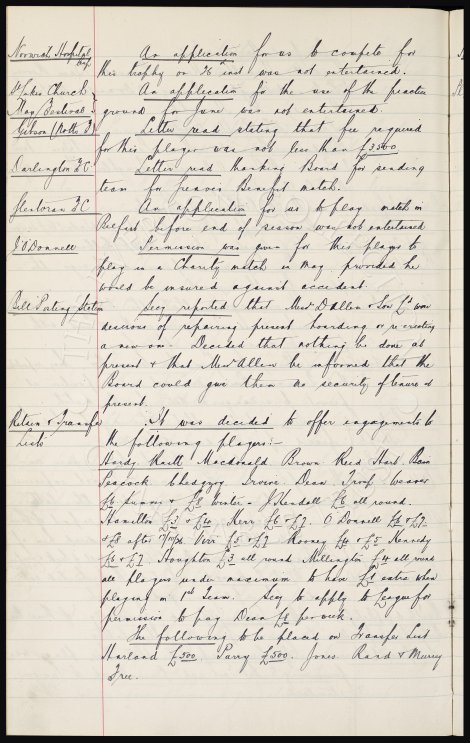 Norwich Hospital Cup
An application for us to compete for
this trophy on 26 inst was not entertained.
St Lukes Church
May Festival
An application for the use of the practice
ground for June was not entertained.
Gibson (Notts F)
Letter read stating that fee required
for this player was not less than £3500
Darlington F.C
Letter read thanking Board for sending
team for Greaves Benefit match.
Glentoran F.C
An application for us to play match in
Belfast before end of season was not entertained
J O'Donnell
Permission was given for this player to
play in a Charity match in May, provided he
would be insured against accident.
Bill Posting Station
Secy reported that Messrs D Allen & Son Ld were
desirous of repairing present hoarding or re erecting
a new one. Decided that nothing be done at
present & that Messrs Allen be informed that the
Board could give them no security of tenure at
present.
Retain & Transfer
Lists
It was decided to offer engagements to
the following players:-
Hardy Raitt Macdonald Brown Reid Hart Bain
Peacock Chedgzoy Irvine Dean Troup Weaver
£6 summer & £8 Winter - J Kendall £6 all round.
Hamilton £3 & £4 Kerr £6 & £7. O'Donnell £6 & £7.
& £8 after Virr £5 & £7 Rooney £4 & £5 Kennedy
£6 & £7. Houghton £3 all round Millington £4 all round
all players under maximum to have £1 extra when
playing in 1st Team. Secy to apply to League for
permission to pay Dean £1 per week.
The following to be placed on Transfer List
Harland £300, Parry £500. Jones Rand & Murray
Free.